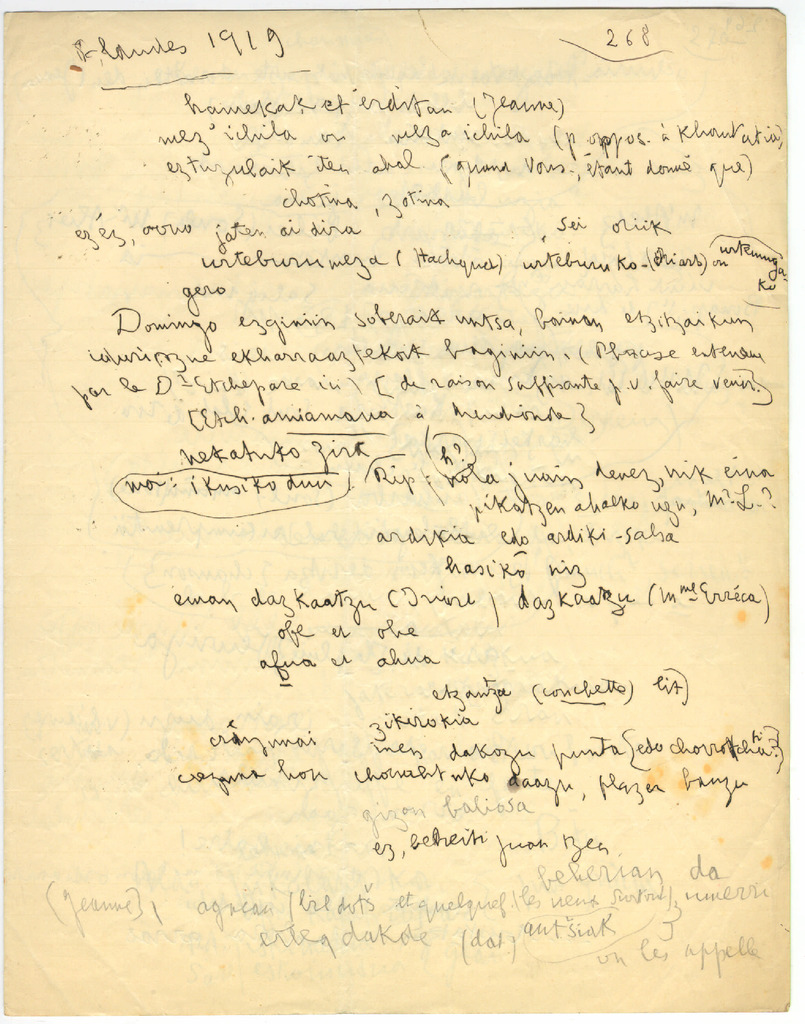 Landes 1919
268
hamekak et erditan (Jeanne)
mez' ichila ou meza ichila (p. oppos. à khantatia)
eztuzulaik iten ahal (quand vous, étant donné que)
chotina, zotina
ez ez, jaten ai dira sei oriik
urteburu meza (Hachquet) urteburuko (Hiart) ou
gero
Domingo ezginiin soberait untsa, bainan etzitzaikun
ekharraaztekoik baginiin. (Phrase entendue
par le Dr Etchepare ici) [de raison suffisante p. v. faire venir]
[Etch. amiamaua à Mendionde]
nekatuko zirt
moi: ikusiko duu Rip: (h?) nola juain denez, nik eina
pikatzen ahalko ugu, Mr L.?
ardikia edo ardiki-salsa
hasikõ niz
eman dazkaatzu (Irriart) dazkaatzu (Mme Erréca)
ofe et ohe
afua et ahua
etzantza (couchette) lit)
zikirokia
men dakozu punta (edo
hori daazu, plazer bauzu
gizon baliosa
ez, beheiti juan tzen
beherian da
(Jeanne), agneau (bildots et quelquef. (les vieux surtout) umerri
erteg dakote (dat) antšiak
on les appelle